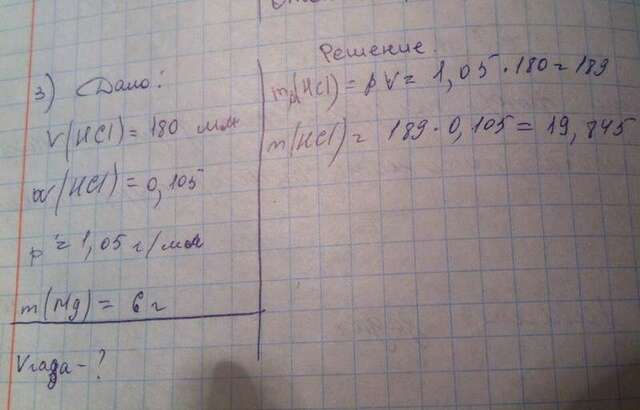 Решение.
3) Дано:
V(HCl) = 180 мл
ω(HCl) = 0,105
ρ = 1,05 г/мл
m(Mg) = 6 г
Vгаза - ?
(HCl) = ρV = 1,05 · 180 = 189
m(HCl) = 189 · 0,105 = 19,845